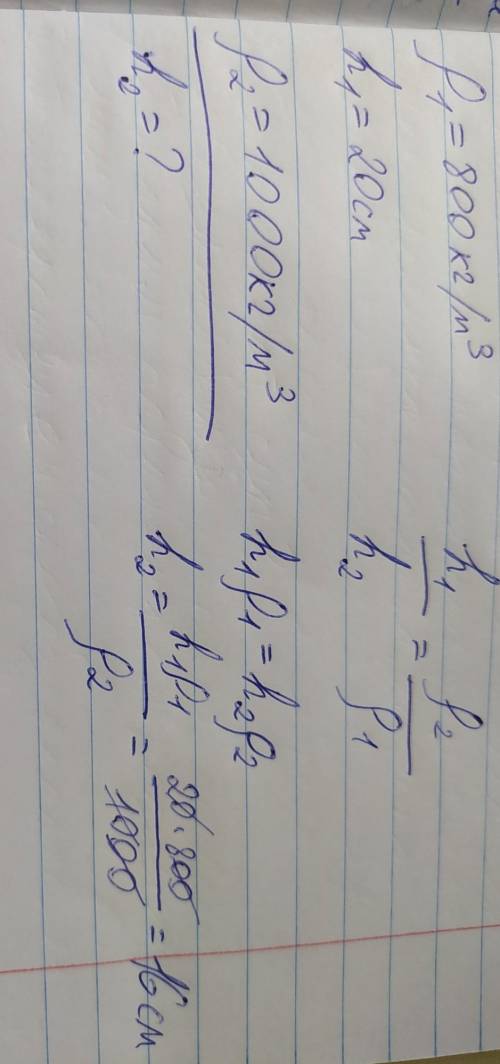 ρ₁ = 800кг/м³
h₁ = 20см
ρ₂ = 1000кг/м³
h₂ = ?
h₁/h₂ = ρ₂/ρ₁
h₁ρ₁ = h₂ρ₂
h₂ = h₁ρ₁/ρ₂ = 20·800/1000 = 16см